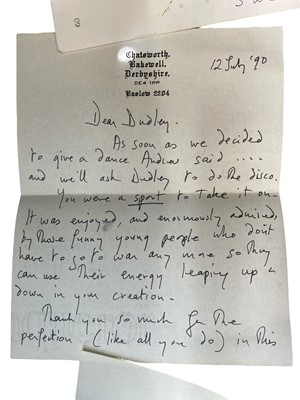 8
Chatsworth,
Bakewell,
Derbyshire.
DE4 1PP
Baslow 2204
12 July '90
Dear Dudley.
As soon as we decided
to give a dance Andrew said ....
and we'll ask Dudley to do the disco.
You were a sport to take it on.
It was enjoyed, and enormously admired,
by those funny young people who don't
have to go to war any more so they
can use their energy leaping up &
down in your creation -
Thank you so much for the
perfection (like all you do) in this